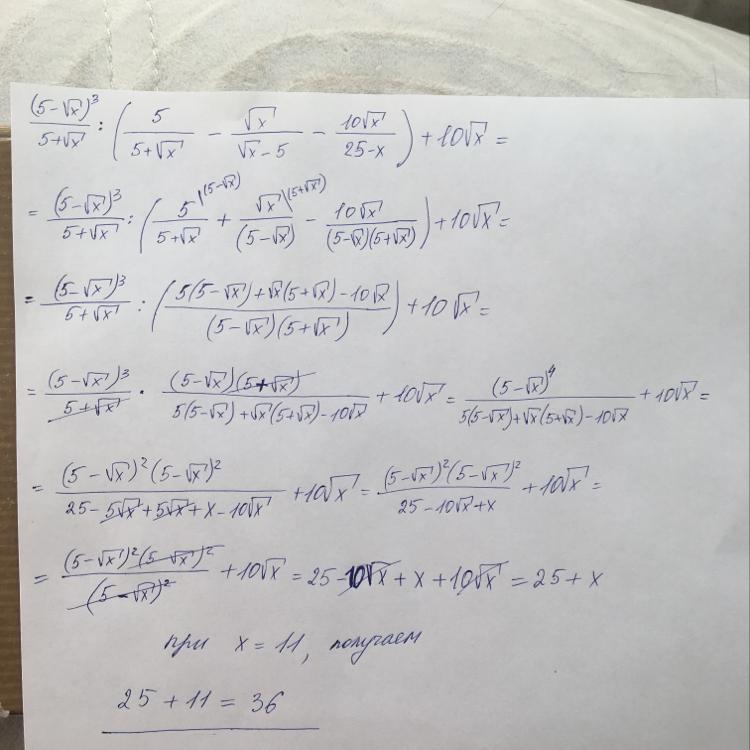 (5-√x)³/(5+√x) : (5/(5+√x) - √x/(√x-5) - 10√x/(25-x)) + 10√x =
= (5-√x)³/(5+√x) : (5\(5-√x)/(5+√x) + √x\(5+√x)/(5-√x) - 10√x/((5-√x)(5+√x))) + 10√x =
= (5-√x)³/(5+√x) : ((5(5-√x)+√x(5+√x)-10√x)/((5-√x)(5+√x))) + 10√x =
= (5-√x)³/(5+√x) · (5-√x)(5+√x)/(5(5-√x)+√x(5+√x)-10√x) + 10√x = (5-√x)⁴/(5(5-√x)+√x(5+√x)-10√x) + 10√x =
= (5-√x)²(5-√x)²/(25-5√x+5√x+x-10√x) + 10√x = (5-√x)²(5-√x)²/(25-10√x+x) + 10√x =
= (5-√x)²(5-√x)²/(5-√x)² + 10√x = 25-10√x+x+10√x = 25+x
при x = 11, получаем
25 + 11 = 36